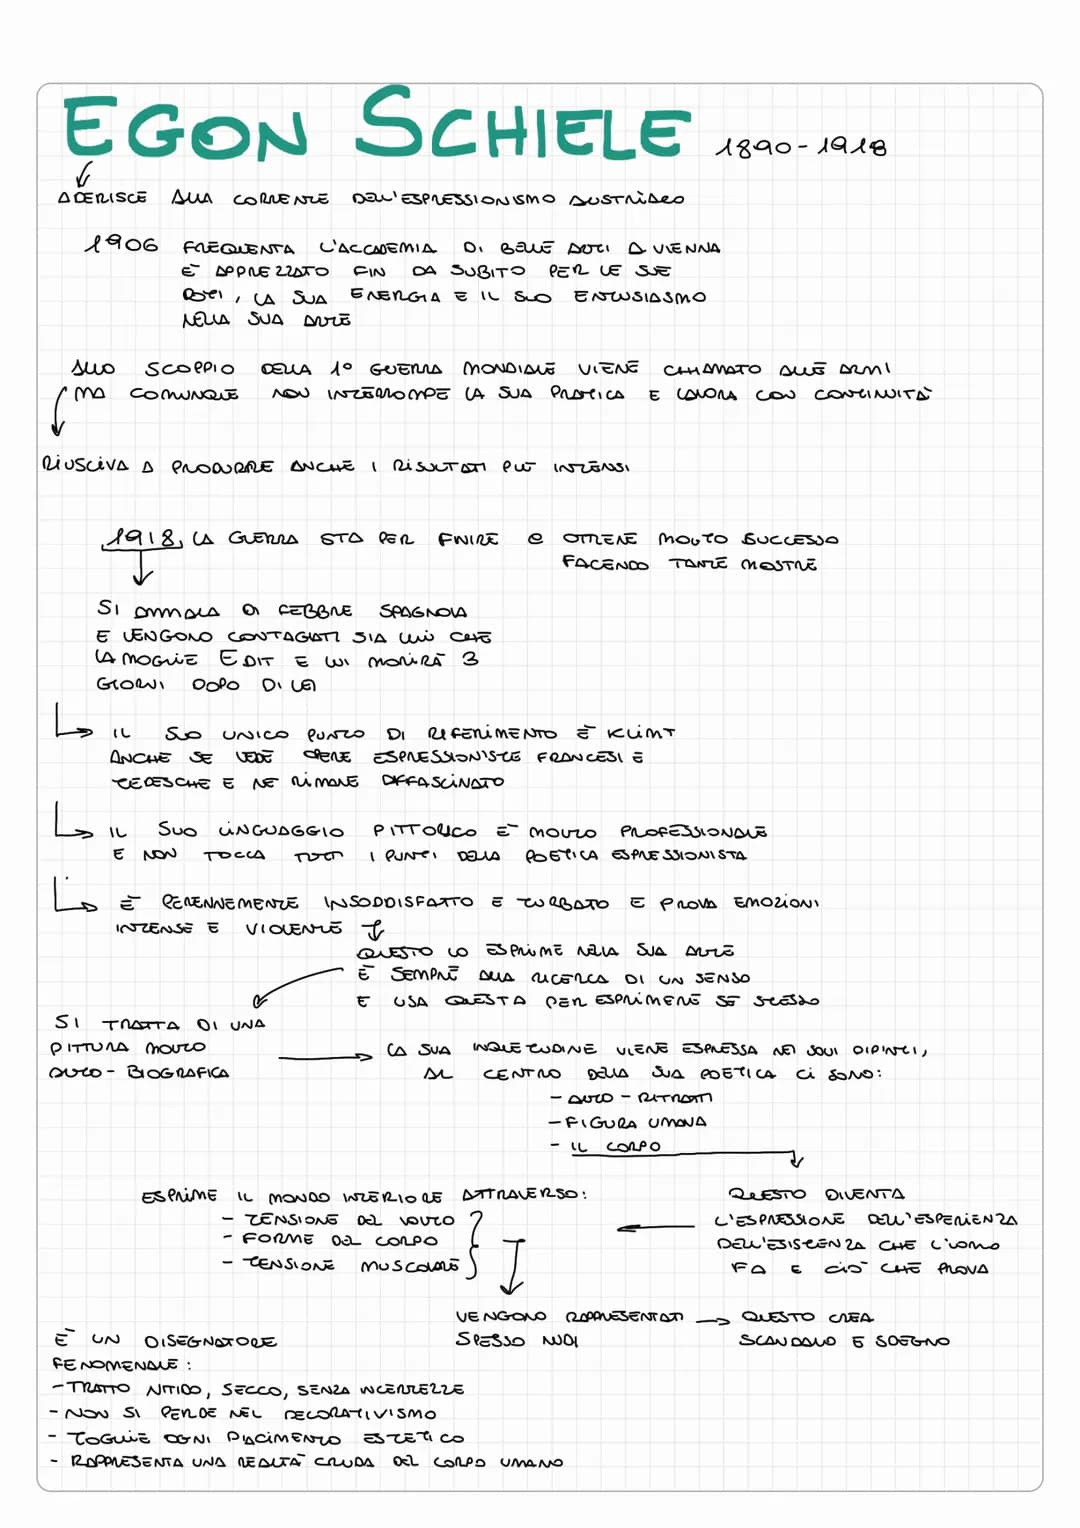 EGON SCHIELE 1890-1918
ADERISCE ALLA CORRENTE DELL'ESPRESSIONISMO AUSTRIACO
1906 FREQUENTA L'ACCADEMIA DI BELLE ARTI A VIENNA
È APPREZZATO FIN DA SUBITO PER LE SUE
DOTI, LA SUA ENERGIA E IL SUO ENTUSIASMO
NELLA SUA ARTE
ALLO SCOPPIO DELLA 1° GUERRA MONDIALE VIENE CHIAMATO ALLE ARMI
MA COMUNQUE NON INTERROMPE LA SUA PRATICA E LAVORA CON CONTINUITÀ
RIUSCIVA A PRODURRE ANCHE I RISULTATI PIÙ INTENSI
1918, LA GUERRA STA PER FINIRE e OTTIENE MOLTO SUCCESSO
FACENDO TANTE MOSTRE
SI AMMALA DI FEBBRE SPAGNOLA
E VENGONO CONTAGIATI SIA LUI CHE
LA MOGLIE EDIT E LUI MORIRÀ 3
GIORNI DOPO DI LEI
IL SUO UNICO PUNTO DI RIFERIMENTO È KLIMT
ANCHE SE VEDE OPERE ESPRESSIONISTE FRANCESI E
TEDESCHE E NE RIMANE AFFASCINATO
IL SUO LINGUAGGIO PITTORICO È MOLTO PROFESSIONALE
E NON TOCCA TUTTI I PUNTI DELLA POETICA ESPRESSIONISTA
È PERENNEMENTE INSODDISFATTO E TURBATO E PROVA EMOZIONI
INTENSE E VIOLENTE
QUESTO LO ESPRIME NELLA SUA ARTE
È SEMPRE ALLA RICERCA DI UN SENSO
E USA QUESTA PER ESPRIMERE SE STESSO
SI TRATTA DI UNA
PITTURA MOLTO
AUTO-BIOGRAFICA
LA SUA INQUIETUDINE VIENE ESPRESSA NEI SUOI DIPINTI,
AL CENTRO DELLA SUA POETICA CI SONO:
- AUTO-RITRATTI
- FIGURA UMANA
- IL CORPO
ESPRIME IL MONDO INTERIORE ATTRAVERSO:
- TENSIONE DEL VOLTO
- FORME DEL CORPO
- TENSIONE MUSCOLARE
QUESTO DIVENTA
L'ESPRESSIONE DELL'ESPERIENZA
DELL'ESISTENZA CHE L'UOMO
FA E CIÒ CHE PROVA
VENGONO RAPPRESENTATI
SPESSO NUDI
QUESTO CREA
SCANDALO E SDEGNO
È UN DISEGNATORE
FENOMENALE:
- TRATTO NITIDO, SECCO, SENZA INCERTEZZE
- NON SI PERDE NEL DECORATIVISMO
- TOGLIE OGNI PIACIMENTO ESTETICO
- RAPPRESENTA UNA REALTÀ CRUDA DEL CORPO UMANO